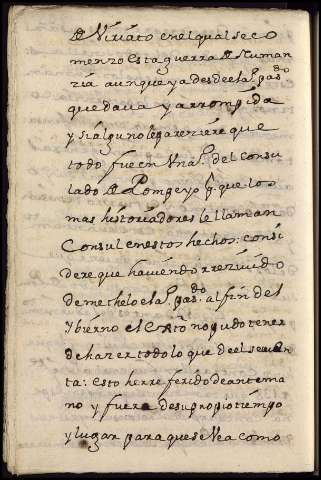 de Viriato en el qual se co
menzo esta guerra de Numan
zia aunque ya desde el a.º pas.do
quedava ya rrompida
y si alguno le pareziere que
todo fue en un a.º del consu
lado de Pompeyo q̃ que los
mas historiadores le llaman
Consul en estos hechos: consi
dere que haviendo rrezivido
de mechelo el a.º pas.do al fin del
Ybierno el exto no pudo tener
de hazer todo lo que de el se quen
ta: esto he rreferido de antema
no y fuera de su propio tiempo
y lugar para que se vea como